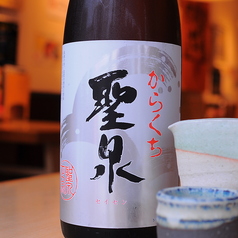 からくち
聖泉